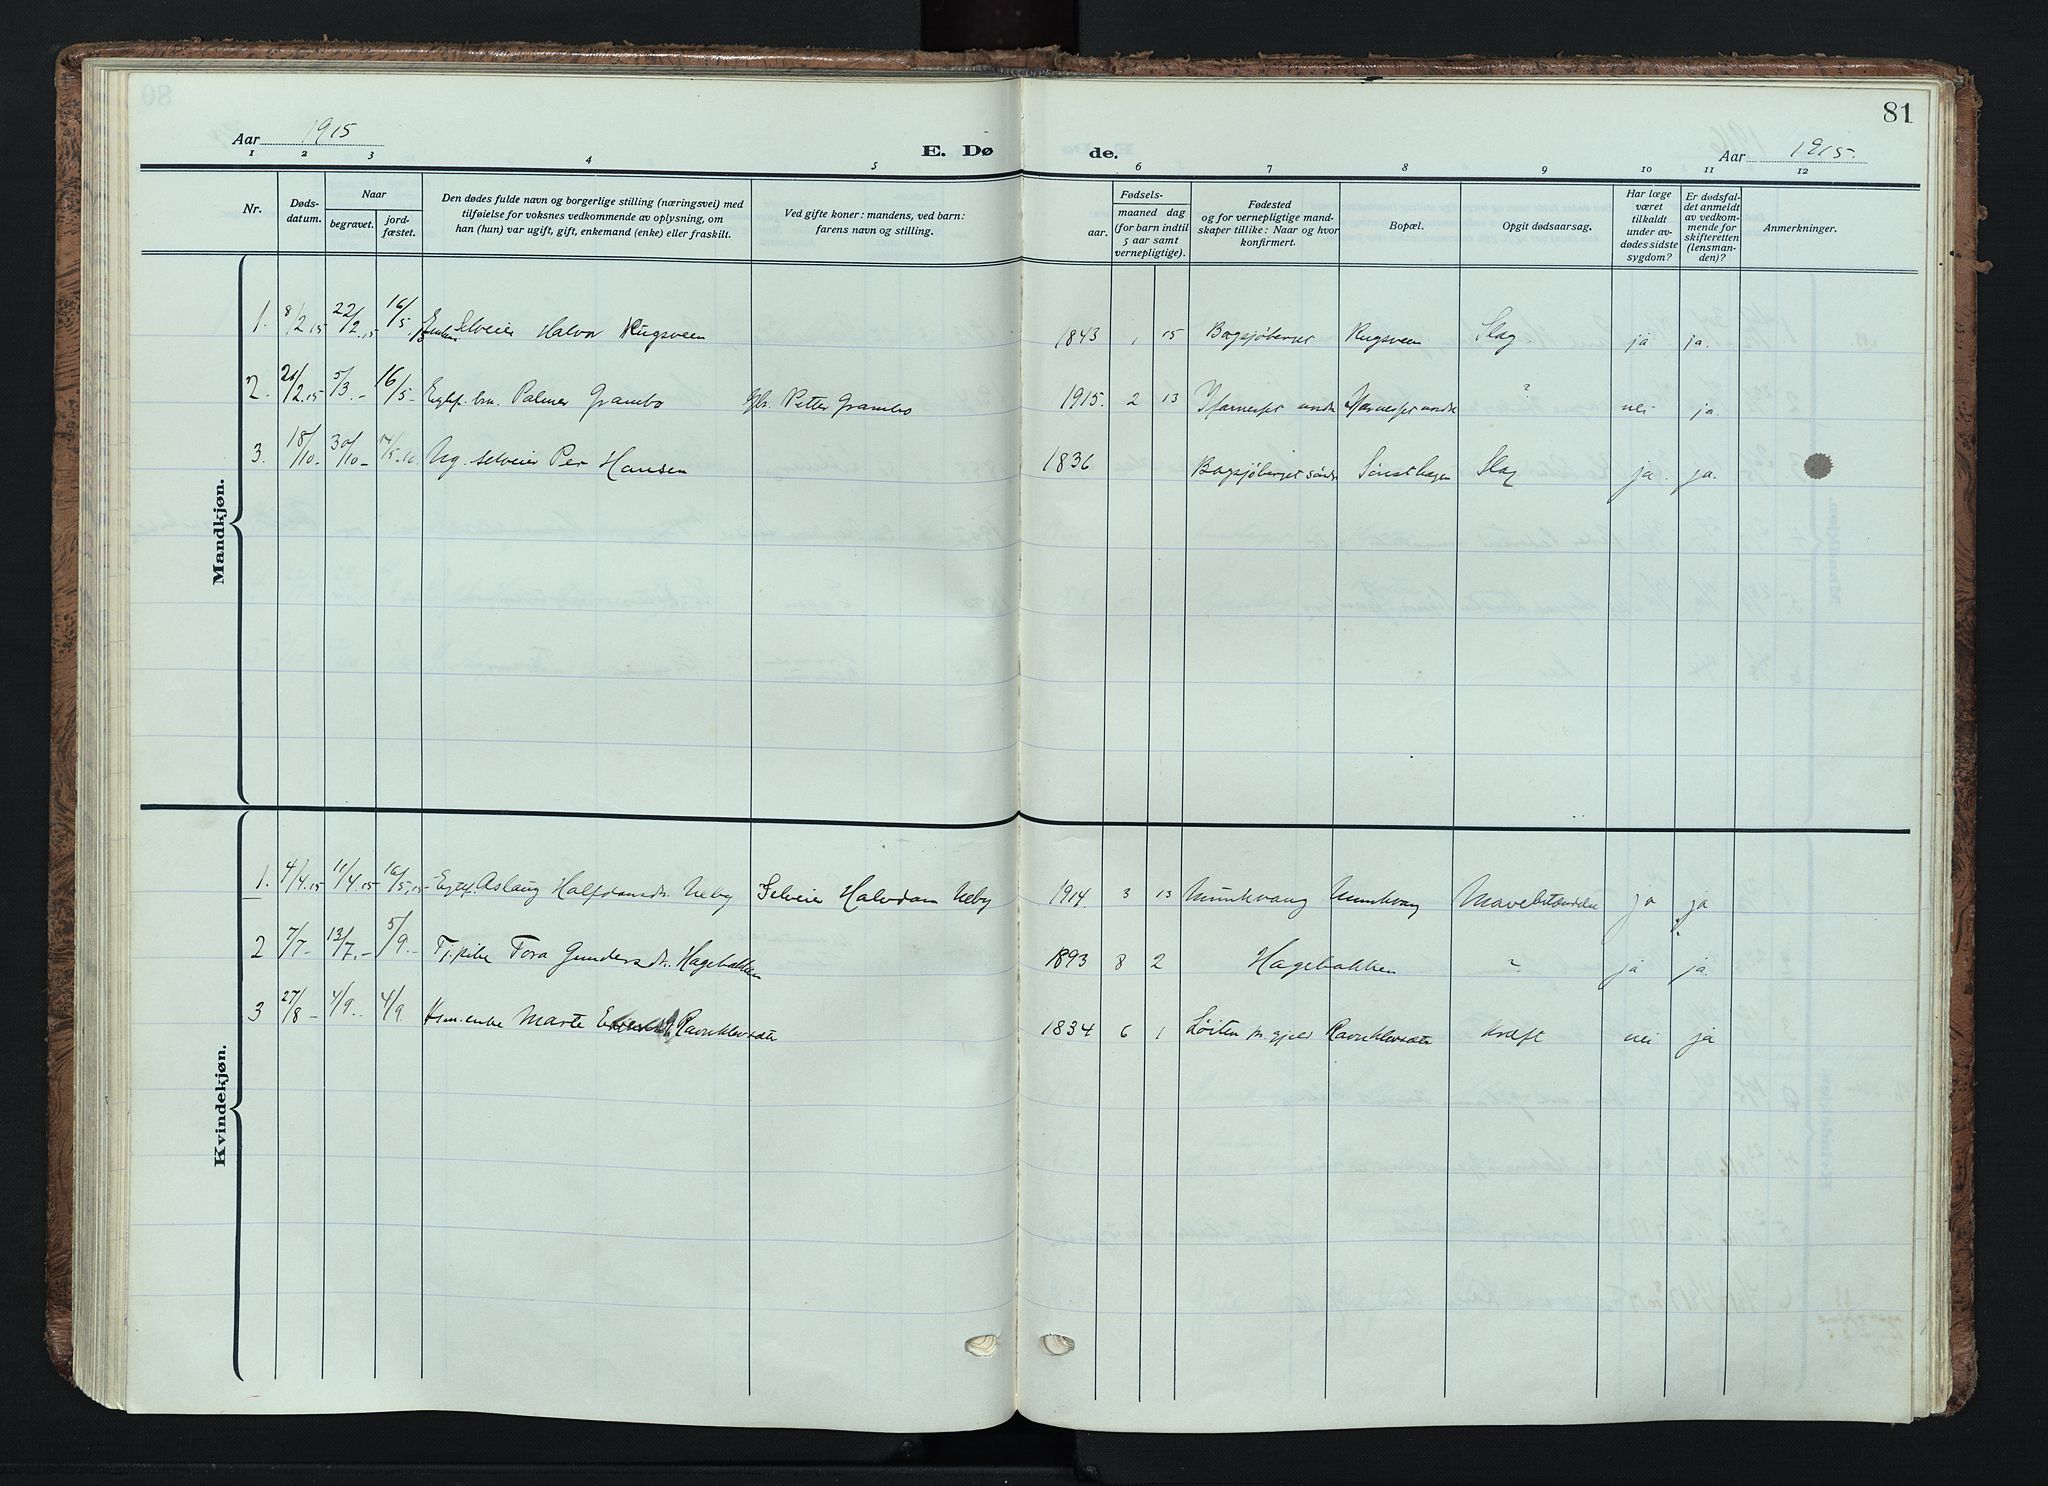 81
Aar 1915
E. Dø de.
Aar 1915.
1 2 3 4 5 6 7 8 9 10 11 12
Nr.
Døds-
datum.
Naar
begravet.
jord-
fæstet.
Den dødes fulde navn og borgerlige stilling (næringsvei) med
tilføielse for voksnes vedkommende av oplysning, om
han (hun) var ugift, gift, enkemand (enke) eller fraskilt.
Ved gifte koner: mandens, ved barn:
farens navn og stilling.
Fødsels-
aar.
maaned dag
(for barn indtil
5 aar samt
vernepligtige).
Fødested
og for vernepligtige mand-
skaper tillike: Naar og hvor
konfirmert.
Bopæl.
Opgit dødsaarsag.
Har læge
været
tilkaldt
under av-
dødes sidste
sygdom?
Er dødsfal-
det anmeldt
av vedkom-
mende for
skifteretten
(lensman-
den)?
Anmerkninger.
Mandkjøn.
1. 8/2.15 22/2.15 16/5. Selveier Halvor Rugsveen 1843 1 15 Bogsjøberget Rugsveen Slag ja ja.
2. 5/3.- 16/5- Palmer Grambo Petter Grambo 1915. 2 13 ? nei ja.
3. 18/10- 30/10- Ug. selveier Per Hansen 1836 Bogsjøberget Sønsthagen Slag ja. ja.
Kvindekjøn.
1. 4/4.15 11/4.15 16/5.15 Aslaug Halfdansdt. Neby Selveier Halvdan Neby 1914. 3 13 Munkvang Munkvang Mavebetændelse ja ja
2 7/7- 13/7.- 5/9.- Tj.pike Tora Gundersdt. Hagebakken 1893 8 2 Hagebakken ? ja ja.
3 27/8- 4/9.. 4/9. Marte Ravnklevsæter 1834 6 1 Løiten pr.gjeld Ravnklevsæter kræft nei ja